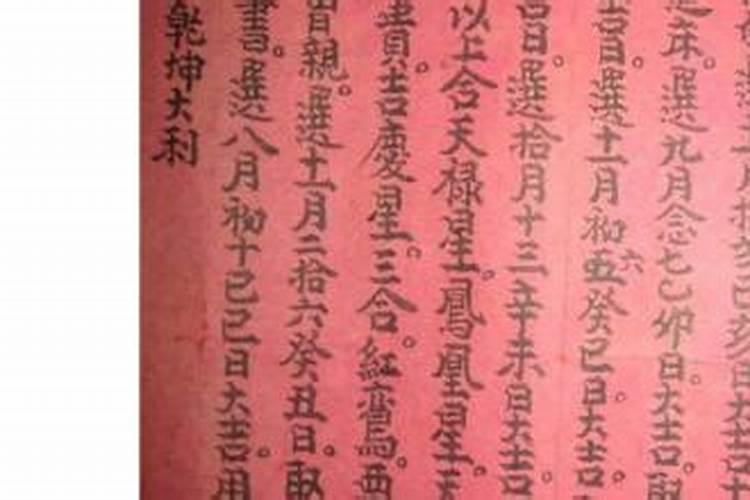 亥己亥日大吉
床選九月念七乙卯日大吉
吉日選十一月初五六癸巳日大吉
吉日選拾月十三辛未日大吉
以上合天禄星鳳凰星天
貴吉慶星三合紅鸞
親選十一月二拾六癸丑日取
書選八月初十己巳日大吉用
乾坤大利